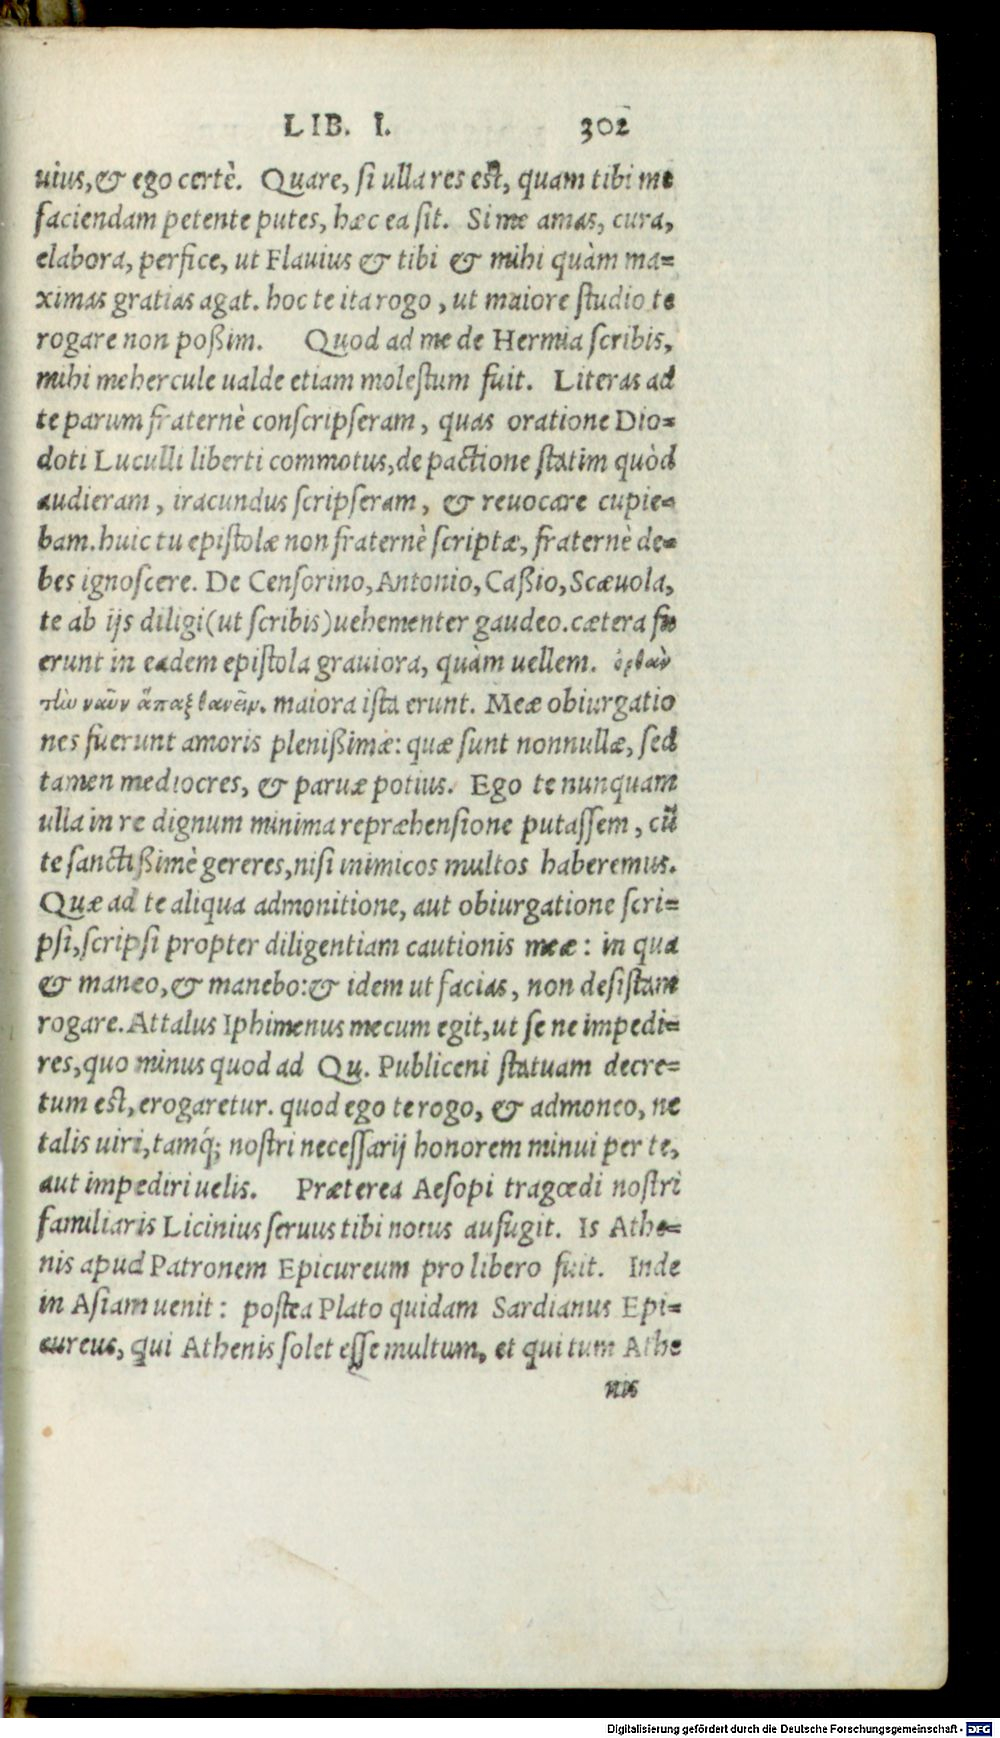 LIB. I. 302
uius, & ego certè. Quare, si ulla res est, quam tibi me
faciendam petente putes, hæc ea sit. Si me amas, cura,
elabora, perfice, ut Flauius & tibi & mihi quàm ma=
ximas gratias agat. hoc te ita rogo, ut maiore studio te
rogare non poßim. Quod ad me de Hermia scribis,
mihi mehercule ualde etiam molestum fuit. Literas ad
te parum fraternè conscripseram, quas oratione Dio=
doti Luculli liberti commotus, de pactione statim quòd
audieram, iracundus scripseram, & reuocare cupie=
bam. huic tu epistolæ non fraternè scriptæ, fraternè de=
bes ignoscere. De Censorino, Antonio, Caßio, Scæuola,
te ab ijs diligi (ut scribis) uehementer gaudeo. cætera fu
erunt in eadem epistola grauiora, quàm uellem. ὀρθὰν
τὰν ναῦν ἅπαξ θανεῖν. maiora ista erunt. Meæ obiurgatio
nes fuerunt amoris plenißimæ: quæ sunt nonnullæ, sed
tamen mediocres, & paruæ potius. Ego te nunquam
ulla in re dignum minima repræhensione putassem, cũ
te sanctißimè gereres, nisi inimicos multos haberemus.
Quæ ad te aliqua admonitione, aut obiurgatione scri=
psi, scripsi propter diligentiam cautionis meæ: in qua
& maneo, & manebo: & idem ut facias, non desistam
rogare. Attalus Iphimenus mecum egit, ut se ne impedi=
res, quo minus quod ad Qu. Publiceni statuam decre=
tum est, erogaretur. quod ego te rogo, & admoneo, ne
talis uiri, tamq́; nostri necessarij honorem minui per te,
aut impediri uelis. Præterea Aesopi tragœdi nostri
familiaris Licinius seruus tibi notus aufugit. Is Athe=
nis apud Patronem Epicureum pro libero fuit. Inde
in Asiam uenit: postea Plato quidam Sardianus Epi=
cureus, qui Athenis solet esse multum, et qui tum Athe
nis
Digitalisierung gefördert durch die Deutsche Forschungsgemeinschaft - DFG